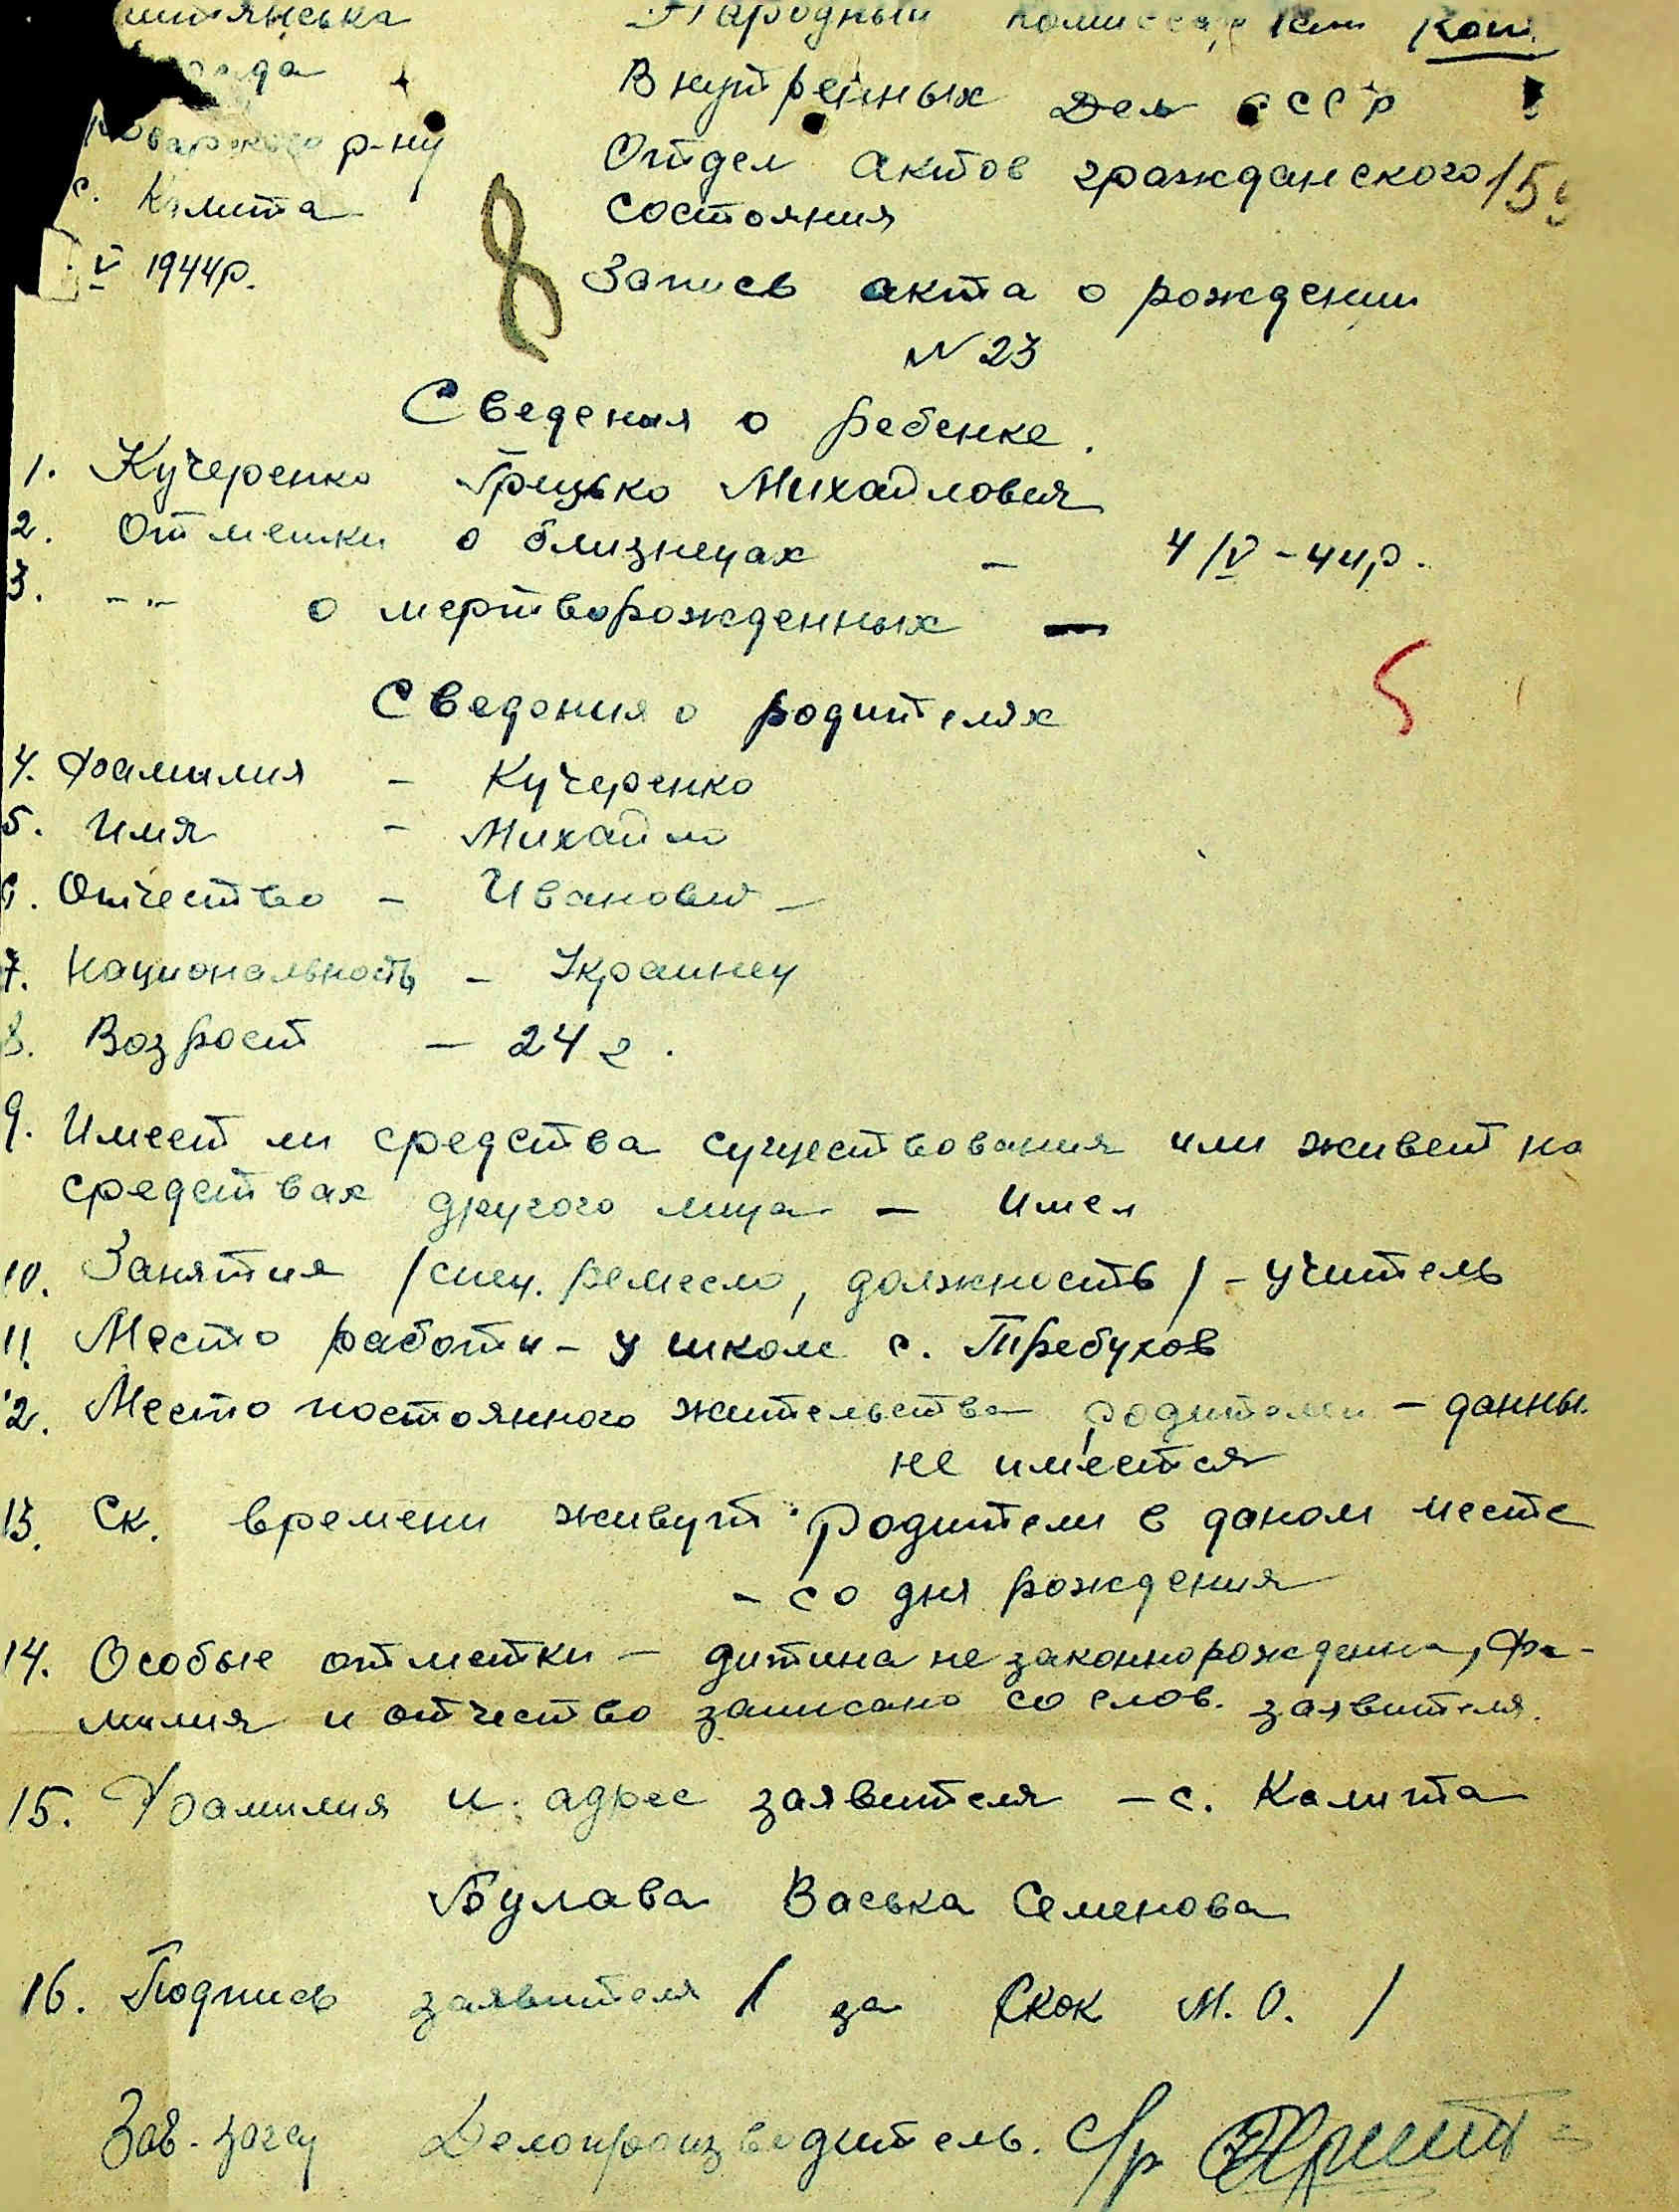 Народный комиссариат Коп.
Внутренных Дел СССР
р-ну
Отдел актов гражданского 159
с. Калита
состояния
V 1944р.
8
Запись акта о рождении
N 23
Сведения о ребенке.
1. Кучеренко Грицько Михайлович
2. Отметки о близнецах - 4/V-44р.
3. -"- о мертворожденных —
Сведения о родителях
4. Фамилия - Кучеренко
5. Имя - Михайло
6. Отчество - Иванович -
7. Национальность - Украинец
8. Возраст - 24 г.
9. Имеет ли средства существования или живет на
средствах другого лица - Имел
10. Занятия /спец. ремесло, должность/ - учитель
11. Место работи - у школе с. Требухов
12. Место постоянного жительства родители - данны.
не имеется
13. Ск. времени живут родители в даном месте
- со дня рождения
14. Особые отметки - дитина незаконнорожденна, фа-
милия и отчество записано со слов. заявителя.
15. Фамилия и адрес заявителя - с. Калита
Булава Васька Семенова
16. Подпись заявителя / за Скок М. О. /
Зав. загсу Делопроизводитель. с/р